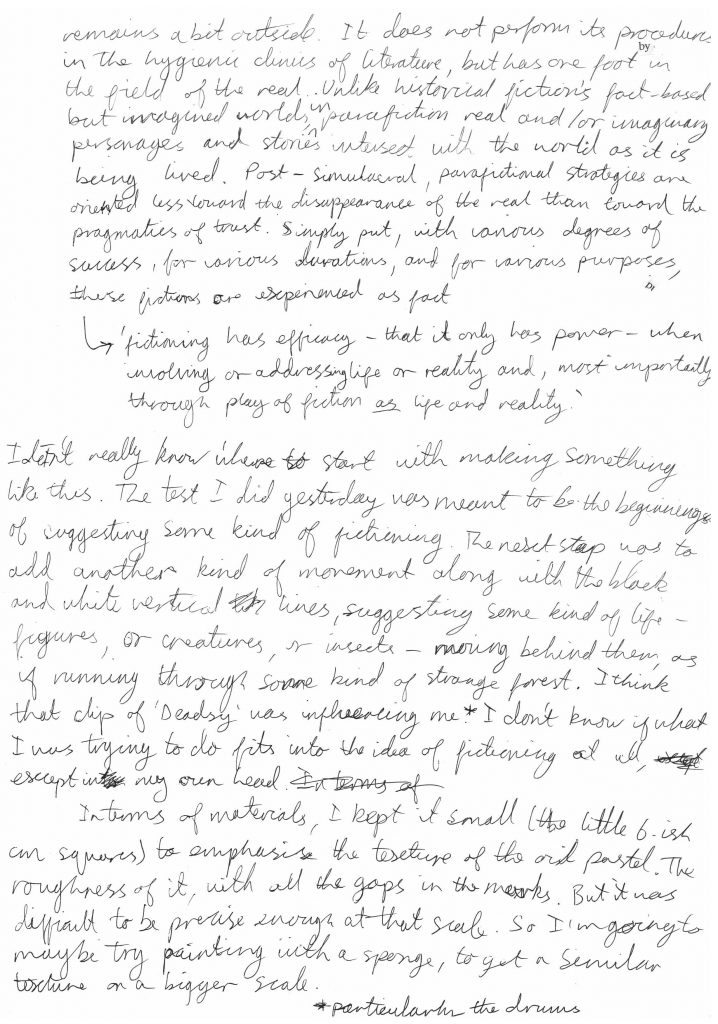 remains a bit outside. It does not perform its procedures
in the hygienic clinics of literature, but has one foot in
by
the field of the real. Unlike historical fiction's fact-based
but imagined worlds, in parafiction real and/or imaginary
personages and stories intersect with the world as it is
being lived. Post-simulacral, parafictional strategies are
oriented less toward the disappearance of the real than toward the
pragmatics of trust. Simply put, with various degrees of
success, for various durations, and for various purposes,
these fictions are experienced as fact
'fictioning has efficacy - that it only has power - when
involving or addressing life or reality and, most importantly
through play of fiction as life and reality.'
I don't really know where to start with making something
like this. The test I did yesterday was meant to be the beginnings
of suggesting some kind of fictioning. The next step was to
add another kind of movement along with the black
and white vertical lines, suggesting some kind of life -
figures, or creatures, or insects - moving behind them, as
if running through some kind of strange forest. I think
that clip of 'Deadsy' was influencing me* I don't know if what
I was trying to do fits into the idea of fictioning at all,
except in my own head. In terms of
In terms of materials, I kept it small (the little 6-ish
cm squares) to emphasise the texture of the oil pastel. The
roughness of it, with all the gaps in the marks. But it was
difficult to be precise enough at that scale. So I'm going to
maybe try painting with a sponge, to get a similar
texture on a bigger scale.
*particularly the drums